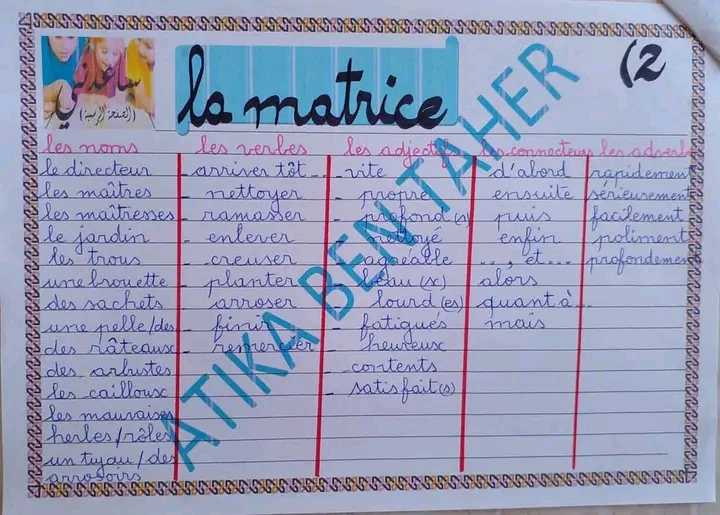 ساعدني
(الصفحة الرسمية)
la matrice
(2
les noms les verbes les adjectifs les connecteurs les adverbes
le directeur - arriver tôt... - vite d'abord rapidement
les maîtres - nettoyer - propre ensuite sérieusement
les maîtresses - ramasser - profond(s) puis facilement
le jardin - enlever - nettoyé enfin poliment
les trous - creuser - agréable ..., et... profondement
une brouette - planter - beau(x) alors
des sachets - arroser - lourd(es) quant à...
une pelle/des - finir - fatigués mais
des râteaux - remercier - heureux
des arbustes - contents
les cailloux - satisfait(s)
les mauvaises
herbes/rôles
un tuyau/des
arrosoirs
ATIKA BEN TAHER